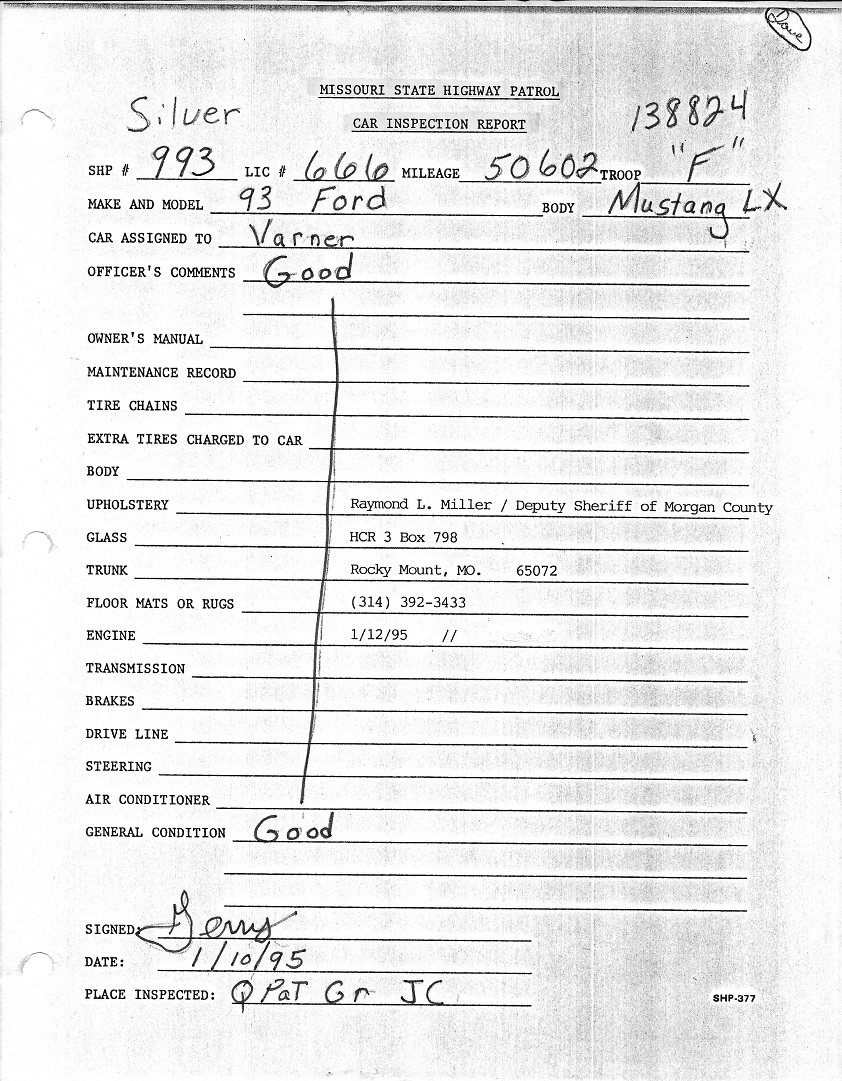 Dave
MISSOURI STATE HIGHWAY PATROL
Silver
138824
CAR INSPECTION REPORT
SHP # 993 LIC # 666 MILEAGE 50602 TROOP "F"
MAKE AND MODEL 93 Ford BODY Mustang LX
CAR ASSIGNED TO Varner
OFFICER'S COMMENTS Good
OWNER'S MANUAL
MAINTENANCE RECORD
TIRE CHAINS
EXTRA TIRES CHARGED TO CAR
BODY
UPHOLSTERY Raymond L. Miller / Deputy Sheriff of Morgan County
GLASS HCR 3 Box 798
TRUNK Rocky Mount, MO. 65072
FLOOR MATS OR RUGS (314) 392-3433
ENGINE 1/12/95 //
TRANSMISSION
BRAKES
DRIVE LINE
STEERING
AIR CONDITIONER
GENERAL CONDITION Good
SIGNED: Gerry
DATE: 1/10/95
PLACE INSPECTED: Q PaT Gr JC
SHP-377